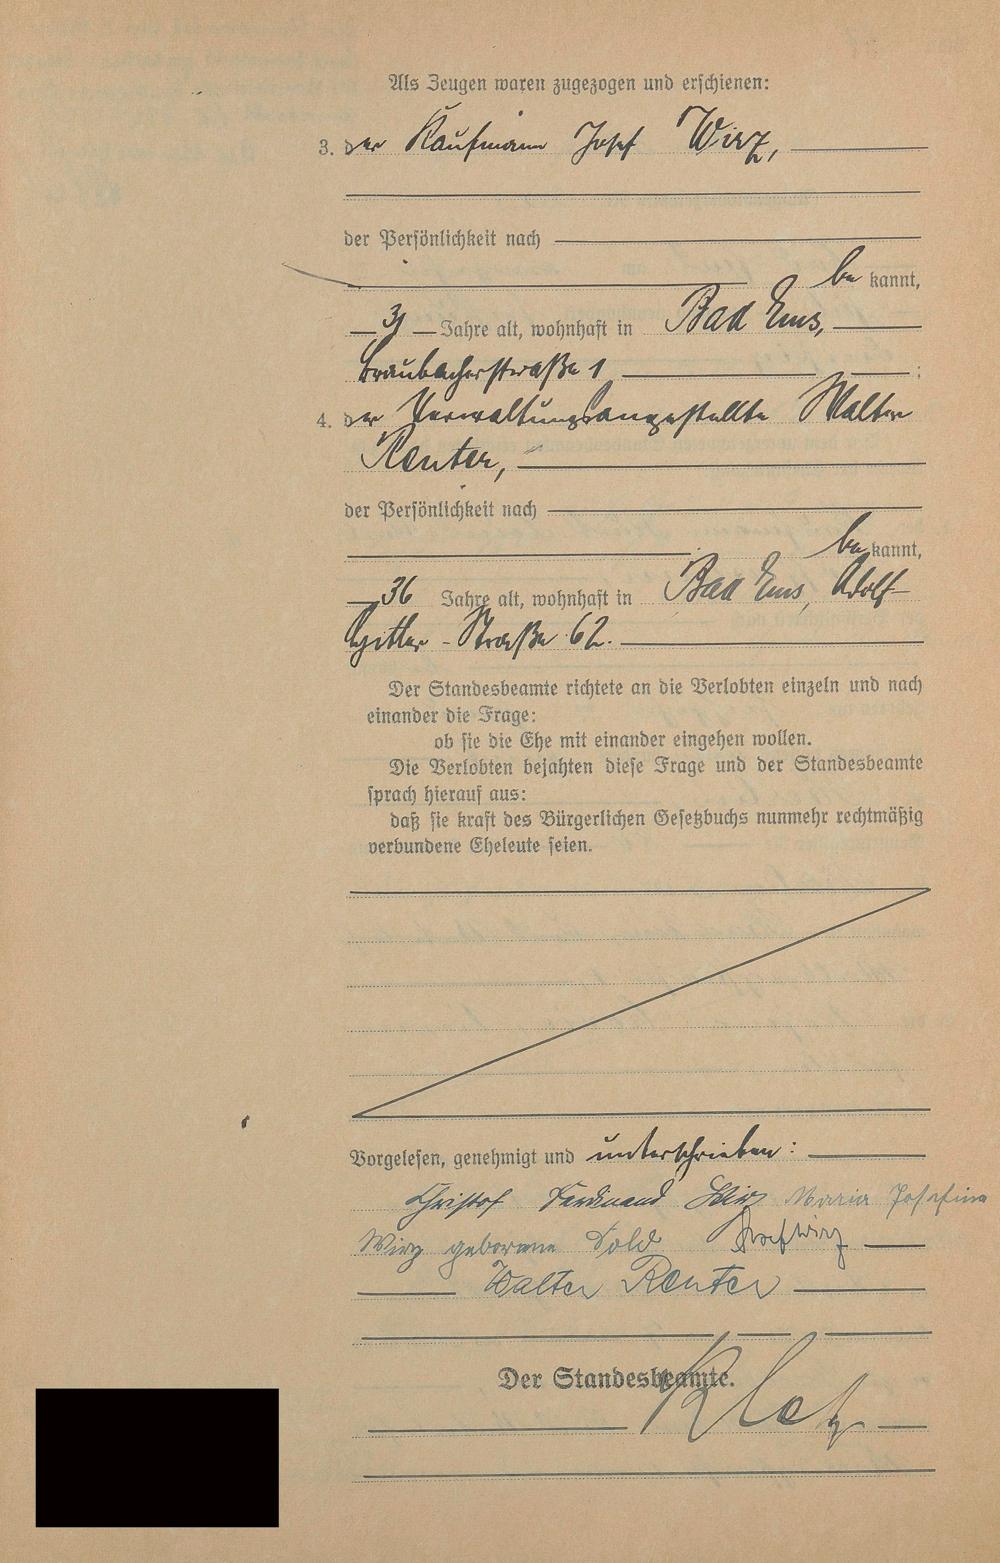 Als Zeugen waren zugezogen und erschienen:
3. der Kaufmann Josef Wirz,
der Persönlichkeit nach
bekannt,
Jahre alt, wohnhaft in Bad Ems,
Braubacherstraße 1 ;
4. der Verwaltungsangestellte Walter
Reuter,
der Persönlichkeit nach
bekannt,
36 Jahre alt, wohnhaft in Bad Ems, Adolf
Hitler-Straße 62.
Der Standesbeamte richtete an die Verlobten einzeln und nach
einander die Frage:
ob sie die Ehe mit einander eingehen wollen.
Die Verlobten bejahten diese Frage und der Standesbeamte
sprach hierauf aus:
daß sie kraft des Bürgerlichen Gesetzbuchs nunmehr rechtmäßig
verbundene Eheleute seien.
Vorgelesen, genehmigt und unterschrieben:
Christof Ferdinand Wirz Maria Josefine
Wirz geborene Sold Josef Wirz
Walter Reuter
Der Standesbeamte.